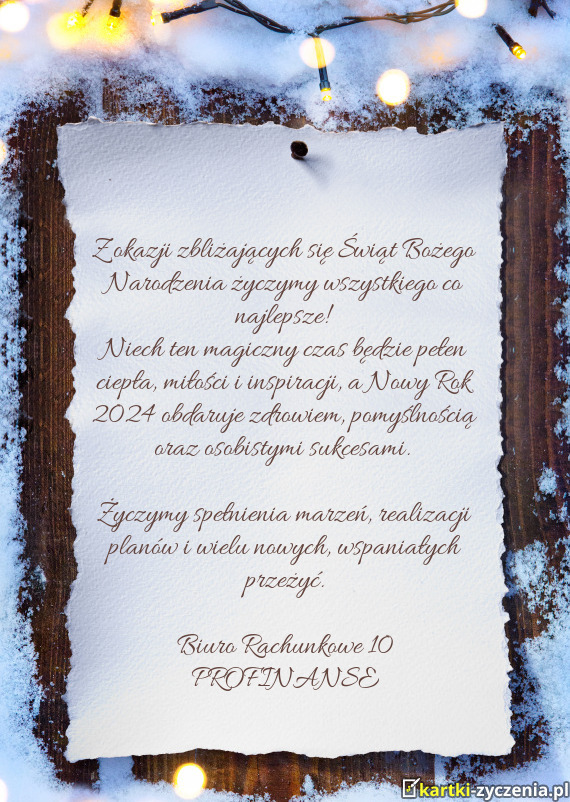 Z okazji zbliżających się Świąt Bożego
Narodzenia życzymy wszystkiego co
najlepsze!
Niech ten magiczny czas będzie pełen
ciepła, miłości i inspiracji, a Nowy Rok
2024 obdaruje zdrowiem, pomyślnością
oraz osobistymi sukcesami.
Życzymy spełnienia marzeń, realizacji
planów i wielu nowych, wspaniałych
przeżyć.
Biuro Rachunkowe 10
PROFINANSE
kartki-zyczenia.pl